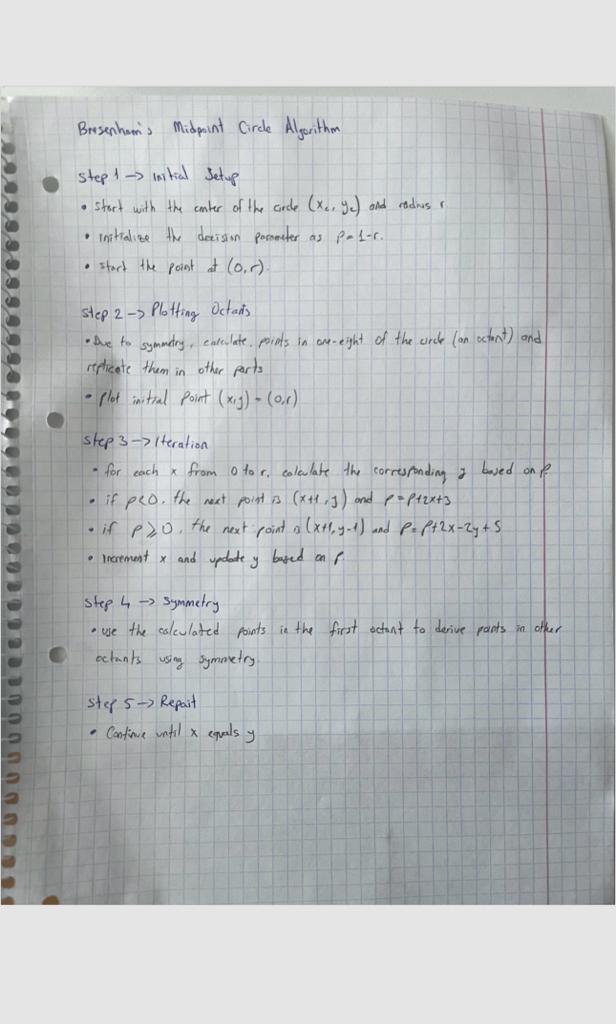 Bresenham's Midpoint Circle Algorithm
Step 1 -> Initial Setup
• Start with the center of the circle (xc, yc) and radius r
• initialize the decision parameter as P=1-r.
• Start the point at (0,r).
Step 2 -> Plotting Octants
• Due to symmetry, calculate points in one-eight of the circle (an octant) and
replicate them in other parts
• Plot initial Point (x,y) = (0,r)
Step 3 -> Iteration
• for each x from 0 to r, calculate the corresponding y based on P.
• if P<0, the next point is (x+1, y) and P=P+2x+3
• if P≥0, the next point is (x+1, y-1) and P=P+2x-2y+5
• Increment x and update y based on P
Step 4 -> Symmetry
• use the calculated points in the first octant to derive points in other
octants using symmetry.
Step 5 -> Repait
• Continue until x equals y